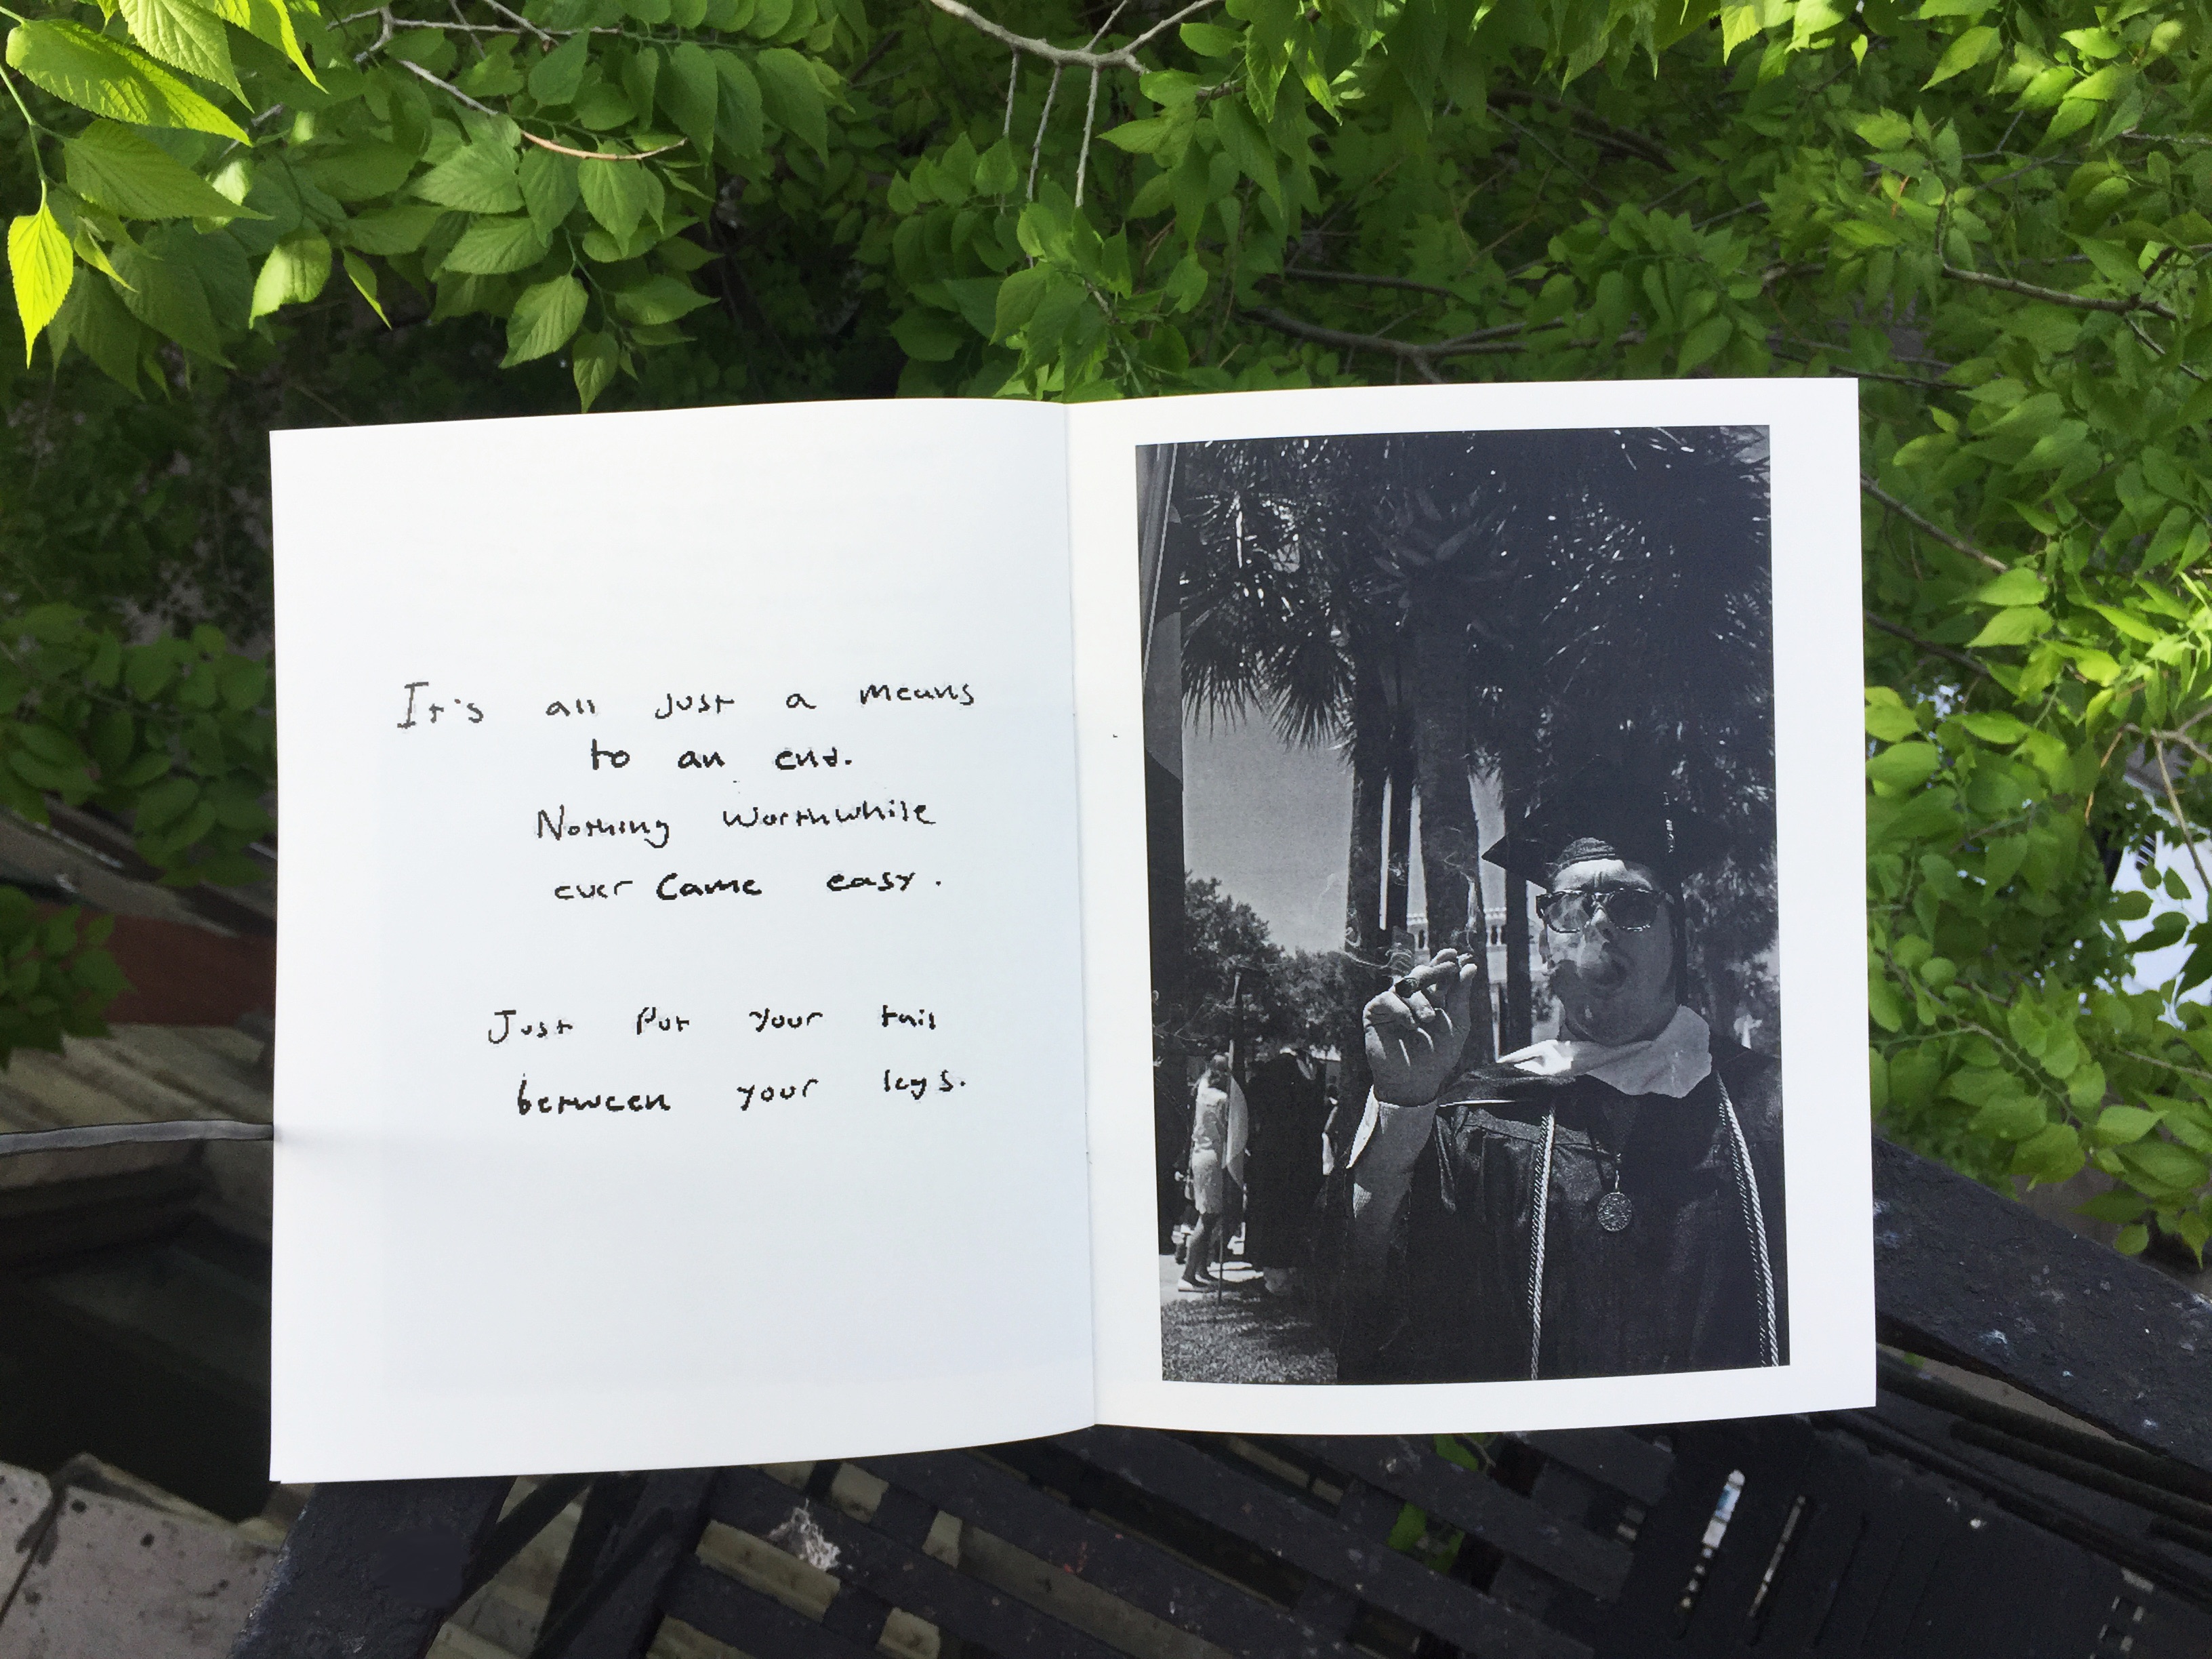 It's all just a means
to an end.
Nothing worthwhile
ever came easy.
Just put your tail
between your legs.